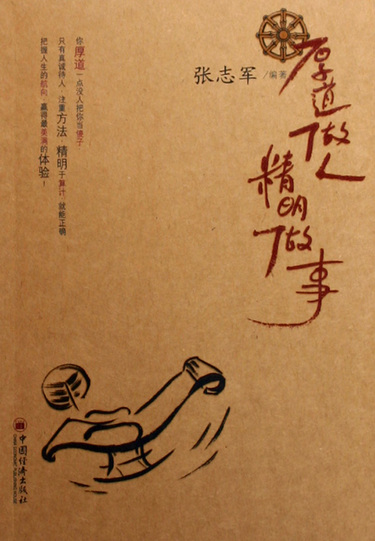 厚道做人
精明做事
张志军/编著
你厚道一点没人把你当傻子
只有真诚待人，注重方法，精明于算计，就能正确
把握人生的航向，赢得最美满的体验！
中国经济出版社